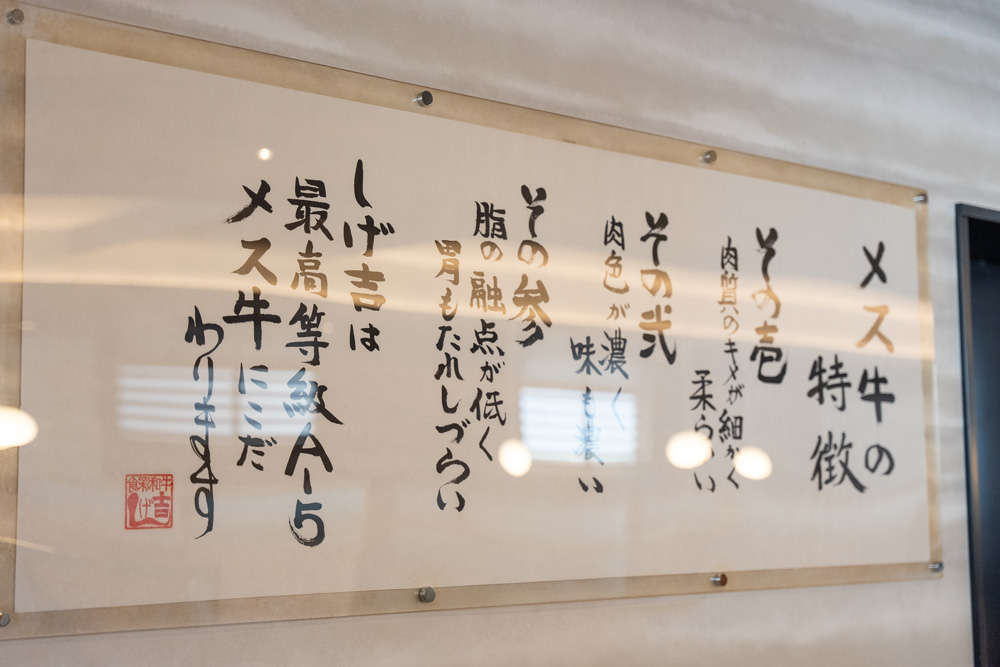 メス牛の
特徴
その壱
肉質のキメが細かく
柔らかい
その弐
肉色が濃く
味も濃い
その参
脂の融点が低く
胃もたれしづらい
しげ吉は
最高等級A-5
メス牛にこだ
わります
和牛
しげ吉